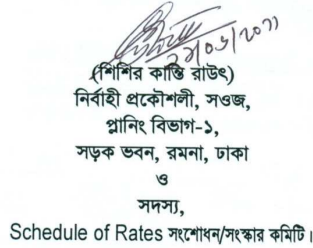 ২৮/০৬/২০১১
(শিশির কান্তি রাউৎ)
নির্বাহী প্রকৌশলী, সওজ,
প্লানিং বিভাগ-১,
সড়ক ভবন, রমনা, ঢাকা
ও
সদস্য,
Schedule of Rates সংশোধন/সংস্কার কমিটি।